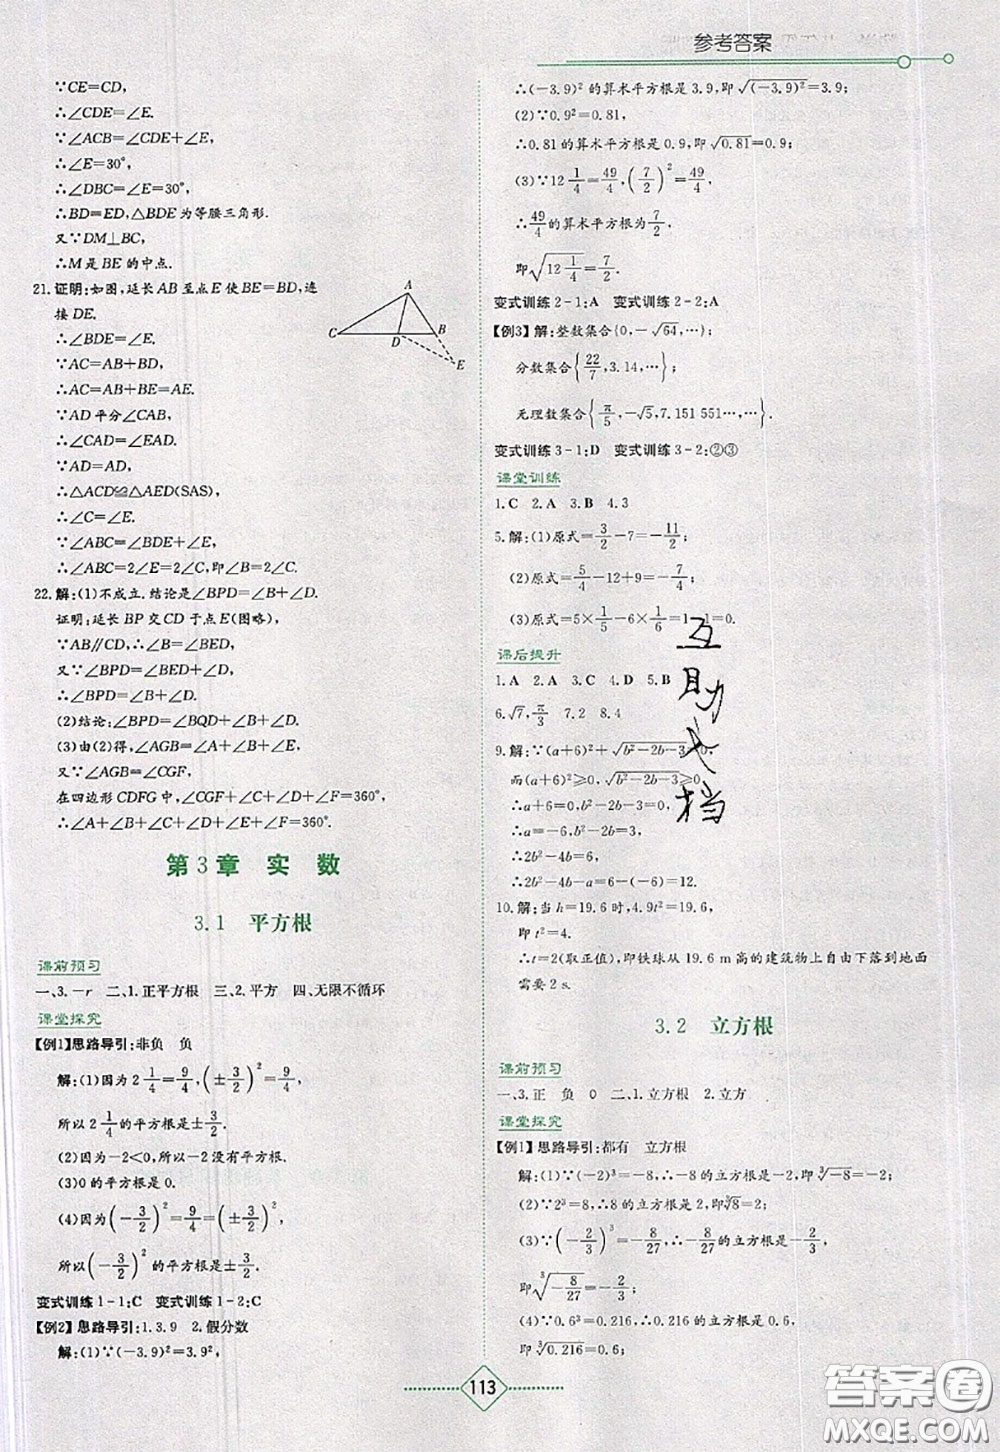 参考答案
∵CE=CD,
∴∠CDE=∠E.
∵∠ACB=∠CDE+∠E,
∴∠E=30°,
∴∠DBC=∠E=30°,
∴BD=ED,△BDE为等腰三角形.
又∵DM⊥BC,
∴M是BE的中点.
21.证明:如图,延长AB至点E使BE=BD,连
接DE.
∴∠BDE=∠E.
∵AC=AB+BD,
∴AC=AB+BE=AE.
∵AD平分∠CAB,
∴∠CAD=∠EAD.
∵AD=AD,
∴△ACD≌△AED(SAS),
∴∠C=∠E.
∵∠ABC=∠BDE+∠E,
∴∠ABC=2∠E=2∠C,即∠B=2∠C.
A
C
D
B
E
22.解:(1)不成立.结论是∠BPD=∠B+∠D.
证明:延长BP交CD于点E(图略),
∵AB∥CD,∴∠B=∠BED,
又∵∠BPD=∠BED+∠D,
∴∠BPD=∠B+∠D.
(2)结论:∠BPD=∠BQD+∠B+∠D.
(3)由(2)得,∠AGB=∠A+∠B+∠E,
又∵∠AGB=∠CGF,
在四边形CDFG中,∠CGF+∠C+∠D+∠F=360°,
∴∠A+∠B+∠C+∠D+∠E+∠F=360°.
第3章 实 数
3.1 平方根
课前预习
一、3.-r 二、1.正平方根 三、2.平方 四、无限不循环
课堂探究
【例1】思路导引:非负 负
解:(1)因为2 1/4=9/4,(±3/2)²=9/4,
所以2 1/4的平方根是±3/2.
(2)因为-2<0,所以-2没有平方根.
(3)0的平方根是0.
(4)因为(-3/2)²=9/4=(±3/2)²,
所以(-3/2)²的平方根是±3/2.
变式训练1-1:C 变式训练1-2:C
【例2】思路导引:1.3.9 2.假分数
解:(1)∵(-3.9)²=3.9²,
∴(-3.9)²的算术平方根是3.9,即√(-3.9)²=3.9;
(2)∵0.9²=0.81,
∴0.81的算术平方根是0.9,即√0.81=0.9;
(3)∵12 1/4=49/4,(7/2)²=49/4,
∴49/4的算术平方根为7/2,
即√(12 1/4)=7/2.
变式训练2-1:A 变式训练2-2:A
【例3】解:整数集合{0,-√64,…};
分数集合{22/7,3.14,…};
无理数集合{π/5,-√5,7.151 551…,…}.
变式训练3-1:D 变式训练3-2:②③
课堂训练
1.C 2.A 3.B 4.3
5.解:(1)原式=3/2-7=-11/2.
(2)原式=5/4-12+9=-7/4.
(3)原式=5×1/5-6×1/6=1-1=0.
课后提升
1.A 2.A 3.C 4.D 5.B
6.√7,π/3 7.2 8.4
9.解:∵(a+6)²+√(b²-2b-3)=0,
而(a+6)²≥0,√(b²-2b-3)≥0,
∴a+6=0,b²-2b-3=0,
∴a=-6,b²-2b=3,
∴2b²-4b=6,
∴2b²-4b-a=6-(-6)=12.
10.解:当h=19.6时,4.9t²=19.6,
即t²=4.
∴t=2(取正值),即铁球从19.6 m高的建筑物上自由下落到地面
需要2 s.
3.2 立方根
课前预习
一、3.正 负 0 二、1.立方根 2.立方
课堂探究
【例1】思路导引:都有 立方根
解:(1)∵(-2)³=-8,∴-8的立方根是-2,即∛-8=-2;
(2)∵2³=8,∴8的立方根是2,即∛8=2;
(3)∵(-2/3)³=-8/27,∴-8/27的立方根是-2/3,
即∛(-8/27)=-2/3;
(4)∵0.6³=0.216,∴0.216的立方根是0.6,
即∛0.216=0.6;
互
助
文
档
113
答案圈
MXQE.COM